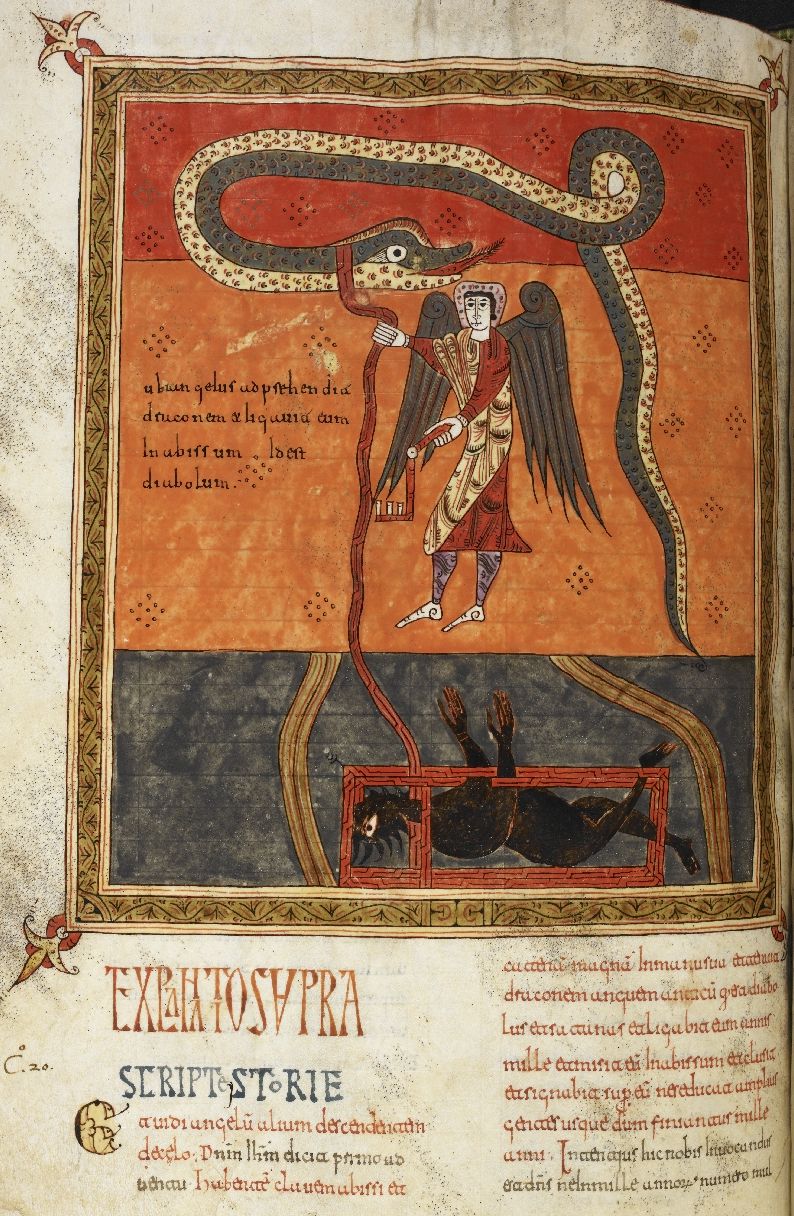 ubi angelus adprehendit
draconem & ligauit eum
In abissum . Id est
diabolum.
EXPLANATIO SUPRA
C.º 20.
SCRIPTE STORIE
Et uidi angelū alium descendentem
de celo. Dnm Ihm dicit primo ad
uentu. Habentē clauem abissi et
catenā magnā In manu sua et tenuit
draconem anguem anticū q̄ est diabo
lus et satanas et ligabit eum annis
mille et misit eū In abissum et clusit
et signabit sup eū ne seducat amplius
gentes usque dum finiantur mille
anni. hic nobis Inuocandus
est dn̄s ne In mille annorum numero mil